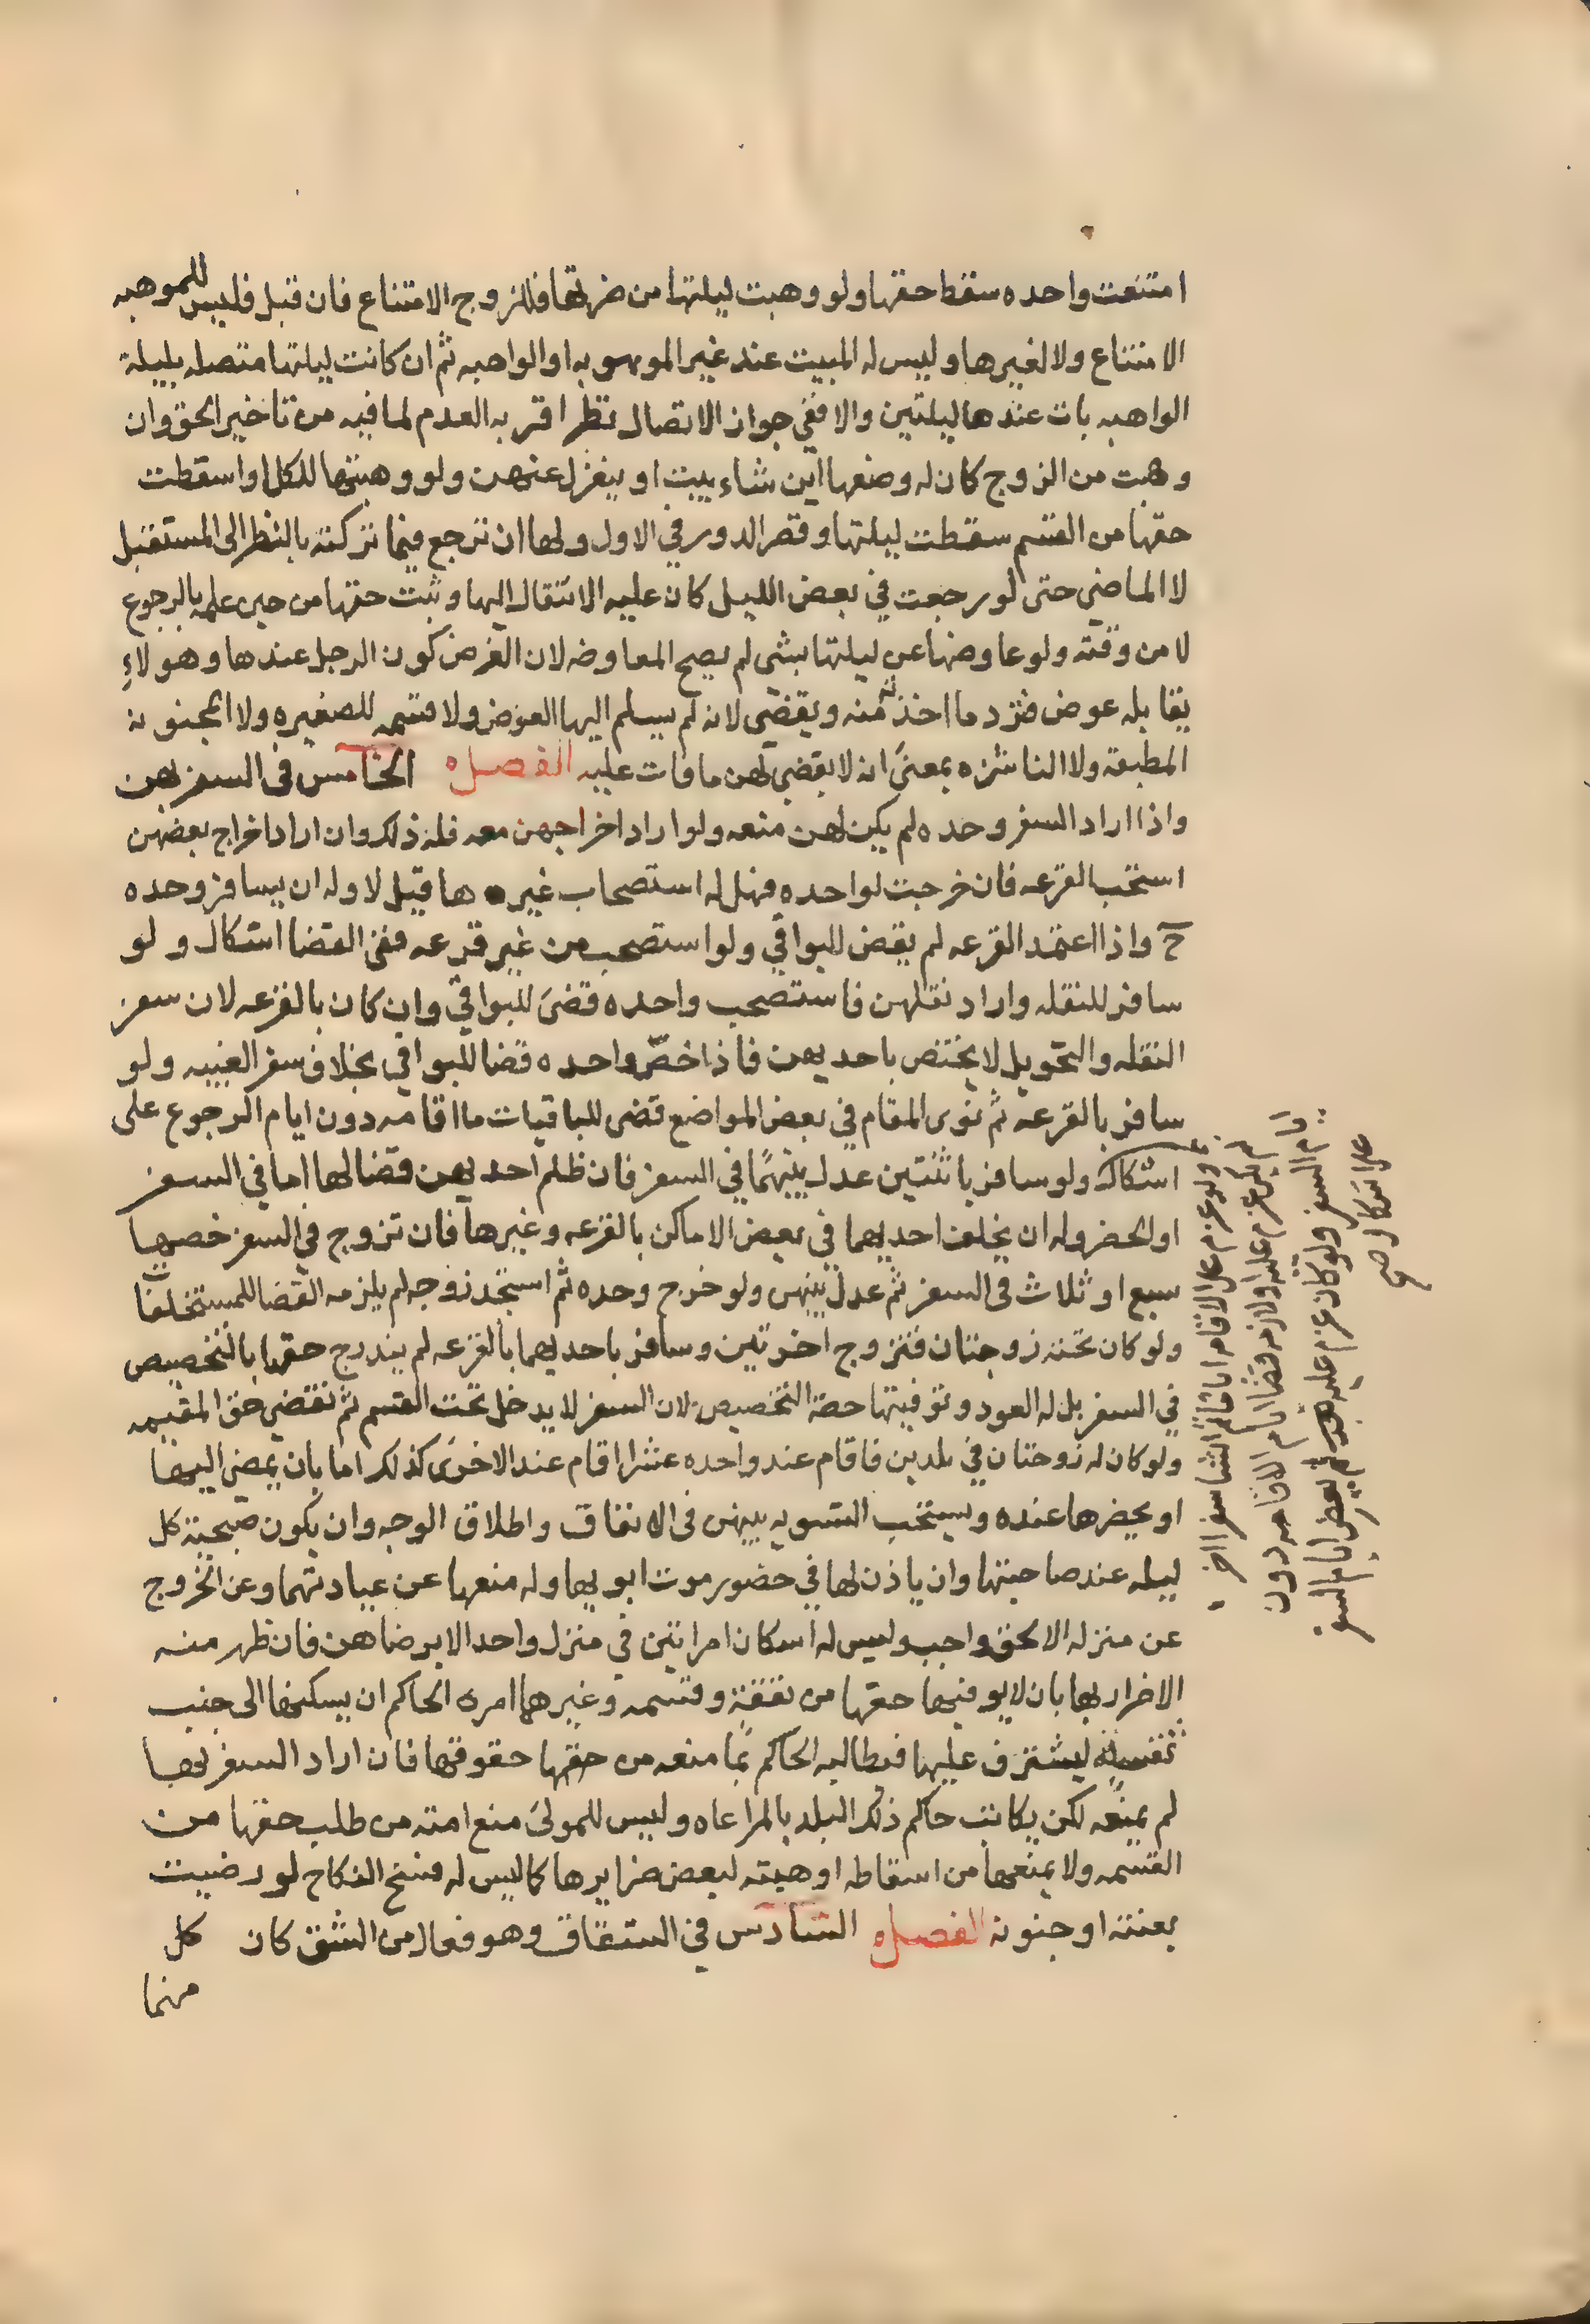 امتنعت واحده سقط حقها ولو وهبت ليلتها من ضرتها فللزوج الامتناع فان قبل فليس للموهبه
الامتناع ولا لغيرها وليس له المبيت عند غير الموهوبه او الواهبه ثم ان كانت ليلتها متصله بليلة
الواهبه بات عندها ليلتين والا ففي جواز الاتصال نظر اقربه العدم لما فيه من تاخير الحق وان
وهبت من الزوج كان له وضعها اين شاء يبيت او ينعزل عنهن ولو وهبتها للكل او اسقطت
حقها من القسم سقطت ليلتها وقصر الدور في الاول ولها ان ترجع فيما تركته بالنظر الى المستقبل
لا الماضي حتى لو رجعت في بعض الليل كان عليه الانتقال اليها وثبت حقها من حين علمه بالرجوع
لا من وقته ولو عاوضها عن ليلتها بشي لم يصح المعاوضه لان الغرض كون الرجل عندها وهو لا
يقابله عوض فترد ما اخذته منه ويقضي لانه لم يسلم اليها العوض ولا قسمه للصغيره ولا المجنونه
المطبقه ولا الناشزه بمعنى انه لا يقضي لهن ما فات عليه الفصل الخامس في السفر بهن
واذا اراد السفر وحده لم يكن لهن منعه ولو اراد اخراجهن معه فله ذلك وان اراد اخراج بعضهن
استحب القرعه فان خرجت لواحده فهل له استصحاب غيرها قيل لا وله ان يسافر وحده
ح واذا اعتمد القرعه لم يقض للبواقي ولو استصحب من غير قرعه ففي القضا اشكال ولو
سافر للنقله واراد نقلهن فاستصحب واحده قضى للبواقي وان كان بالقرعه لان سفر
النقله والتحويل لا يختص باحديهن فاذا خص واحده قضا للبواقي بخلاف سفر الغيبه ولو
سافر بالقرعه ثم نوى المقام في بعض المواضع قضى للباقيات ما اقامه دون ايام الرجوع على
اشكال ولو سافر باثنتين عدل بينهما في السفر فان ظلم احديهن قضا لها اما في السفر
او الحضر وله ان يخلف احديهما في بعض الاماكن بالقرعه وغيرها فان تزوج في السفر خصها
سبع او ثلاث في السفر ثم عدل بينهن ولو خرج وحده ثم استجد زوجه لم يلزمه القضا للمتخلفات
ولو كان تحته زوجتان فتزوج اخرتين وسافر باحديهما بالقرعه لم يندرج حقها بالتخصيص
في السفر بل له العود وتوفيتها حصة التخصيص لان السفر لا يدخل تحت القسم ثم تقضي حق المقيمه
ولو كان له زوجتان في بلدين فاقام عند واحده عشرا اقام عند الاخرى كذلك اما بان يمضي اليها
او يحضرها عنده ويستحب التسويه بينهن في الانفاق واطلاق الوجه وان يكون صبحية كل
ليله عند صاحبتها وان ياذن لها في حضور موت ابويها وله منعها عن عيادتهما وعن الخروج
عن منزله الا لحق واجب وليس له اسكان امراتين في منزل واحد الا برضاهن فان ظهر منه
الاضرار بها بان لا يوفيها حقها من نفقة وقسمه وغيرهما امره الحاكم ان يسكنها الى جنب
ثقة ليشرف عليها فيطالبه الحاكم بما منعه من حقها حقوقها فان اراد السفر بها
لم يمنعه لكن يكاتب حاكم ذلك البلد بالمراعاه وليس للمولى منع امته من طلب حقها من
القسمه ولا يمنعها من اسقاطه او هبته لبعض ضرايرها كما ليس له فسخ النكاح لو رضيت
بعنته او جنونه الفصل السادس في الشقاق وهو فعال من الشق كان كل
منهما
ولو عزم على الاقامه اياما ثم انشا سفرا اخر
لم يكن عزم عليه اولا لزمه قضا ايام الاقامه دون
ايام السفر ولو كان عزم عليه لم يقض ايام السفر
على اشكال صح